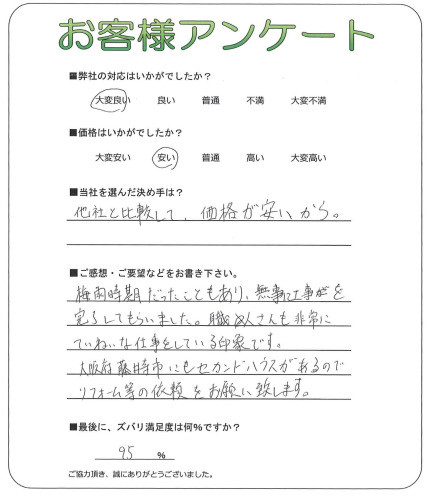 お客様アンケート
■弊社の対応はいかがでしたか？
大変良い 良い 普通 不満 大変不満
■価格はいかがでしたか？
大変安い 安い 普通 高い 大変高い
■当社を選んだ決め手は？
他社と比較して、価格が安いから。
■ご感想・ご要望などをお書き下さい。
梅雨時期だったこともあり、無事工事を
完了してもらいました。職人さんも非常に
ていねいな仕事をしている印象です。
大阪府藤井寺市にもセカンドハウスがあるので
リフォーム等の依頼をお願い致します。
■最後に、ズバリ満足度は何％ですか？
95 ％
ご協力頂き、誠にありがとうございました。